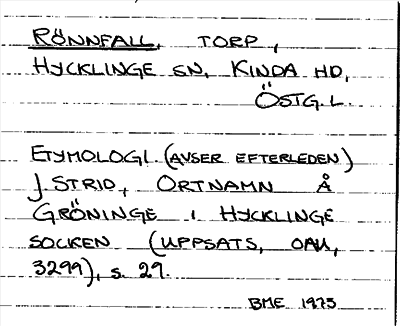 RÖNNFALL, TORP,
HYCKLINGE SN, KINDA HD,
ÖSTG.L.
ETYMOLOGI (AVSER EFTERLEDEN)
J STRID, ORTNAMN Å
GRÖNINGE I HYCKLINGE
SOCKEN (UPPSATS, OAU,
3299), s. 29.
BME 1975